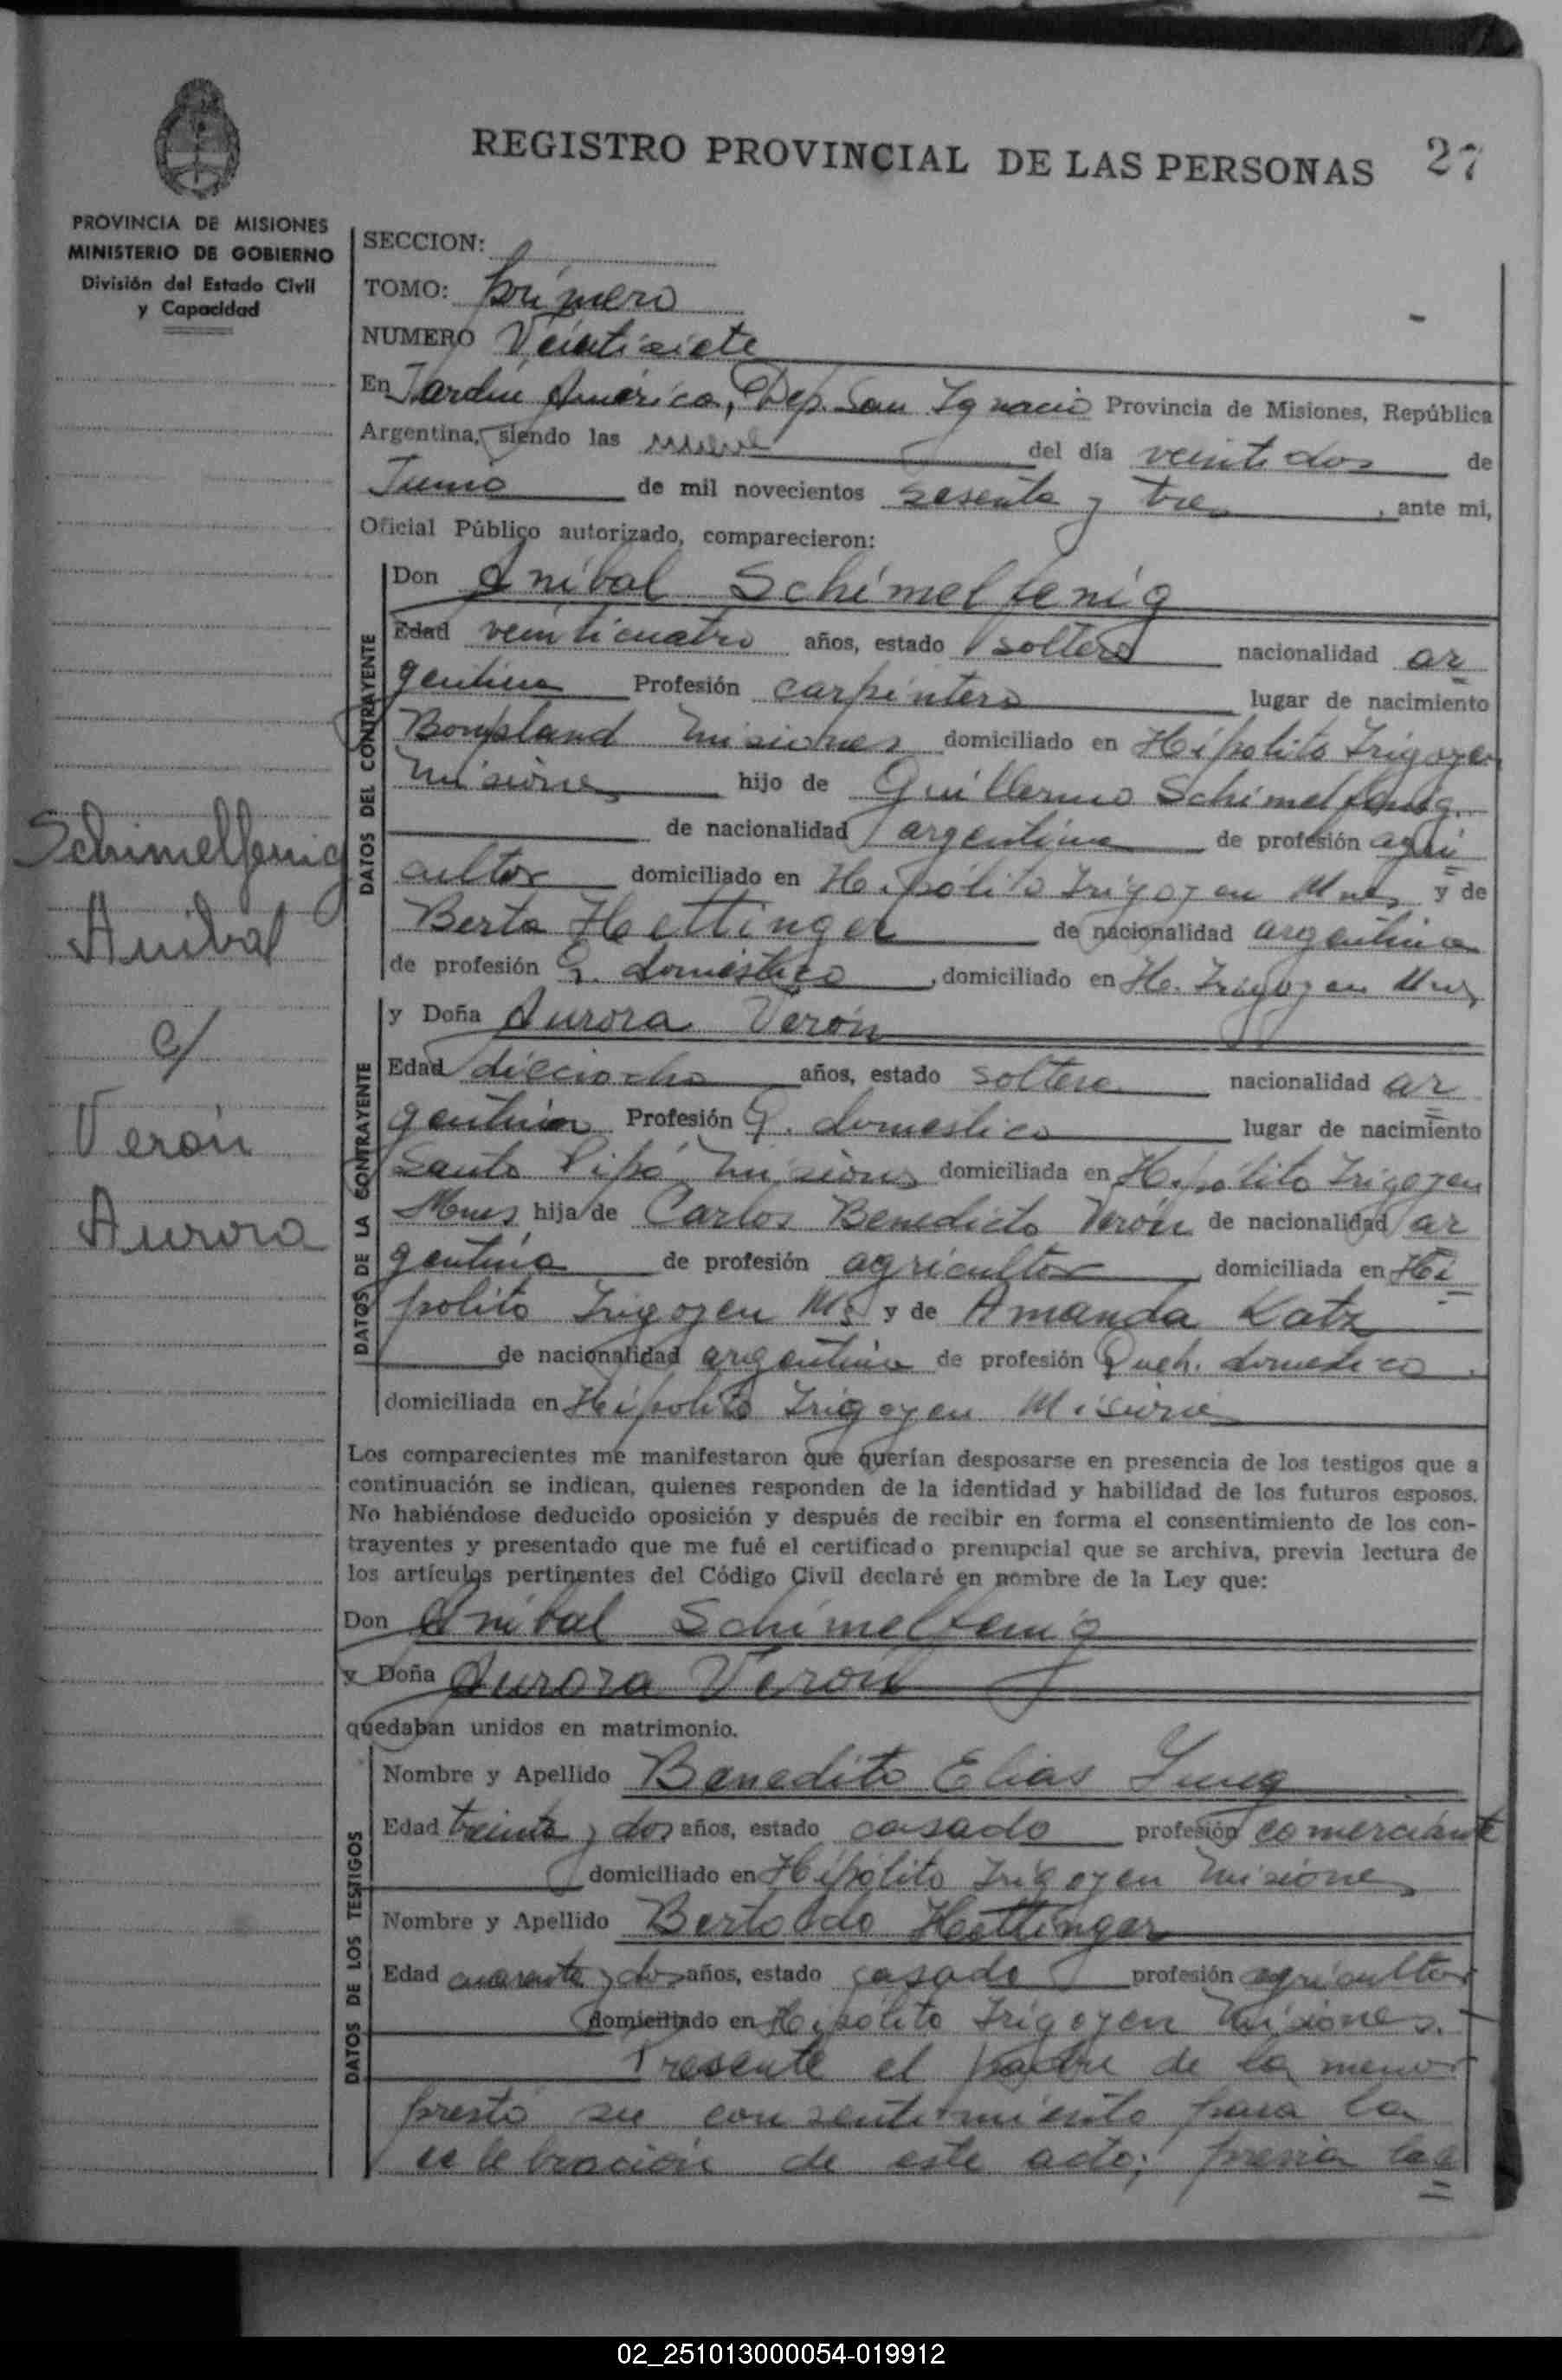 REGISTRO PROVINCIAL DE LAS PERSONAS 27
PROVINCIA DE MISIONES
MINISTERIO DE GOBIERNO
División del Estado Civil
y Capacidad
Schimelfenig
Anibal
c/
Verón
Aurora
SECCION:
TOMO: primero
NUMERO Veintisiete
En Jardín América, Dep. San Ignacio Provincia de Misiones, República
Argentina, siendo las nueve del día veintidos de
Junio de mil novecientos sesenta y tres, ante mi,
Oficial Público autorizado, comparecieron:
DATOS DEL CONTRAYENTE
Don Anibal Schimelfenig
Edad veinticuatro años, estado soltero nacionalidad ar
gentina Profesión carpintero lugar de nacimiento
Bompland Misiones domiciliado en Hipólito Irigoyen
Misiones hijo de Guillermo Schimelfenig
de nacionalidad argentina de profesión agri
cultor domiciliado en Hipólito Irigoyen Mnes y de
Berta Hettinger de nacionalidad argentina
de profesión Q. domestico, domiciliado en H. Irigoyen Mnes
DATOS DE LA CONTRAYENTE
y Doña Aurora Verón
Edad dieciocho años, estado soltera nacionalidad ar
gentina Profesión Q. domestico lugar de nacimiento
Santo Pipó Misiones domiciliada en Hipólito Irigoyen
Mnes hija de Carlos Benedicto Verón de nacionalidad ar
gentina de profesión agricultor, domiciliada en Hi
polito Irigoyen Ms y de Amanda Katz
de nacionalidad argentina de profesión Queh. domestico.
domiciliada en Hipolito Irigoyen Misiones
Los comparecientes me manifestaron que querían desposarse en presencia de los testigos que a
continuación se indican, quienes responden de la identidad y habilidad de los futuros esposos.
No habiéndose deducido oposición y después de recibir en forma el consentimiento de los con-
trayentes y presentado que me fué el certificado prenupcial que se archiva, previa lectura de
los artículos pertinentes del Código Civil declaré en nombre de la Ley que:
Don Anibal Schimelfenig
y Doña Aurora Verón
quedaban unidos en matrimonio.
DATOS DE LOS TESTIGOS
Nombre y Apellido Benedito Elias Jung
Edad treinta y dos años, estado casado profesión comerciante
domiciliado en Hipólito Irigoyen Misiones
Nombre y Apellido Bertoldo Hettinger
Edad cuarenta y dos años, estado casado profesión agricultor
domiciliado en Hipólito Irigoyen Misiones.
Presente el padre de la menor
prestó su consentimiento para la
celebración de este acto; previa lec
02_251013000054-019912